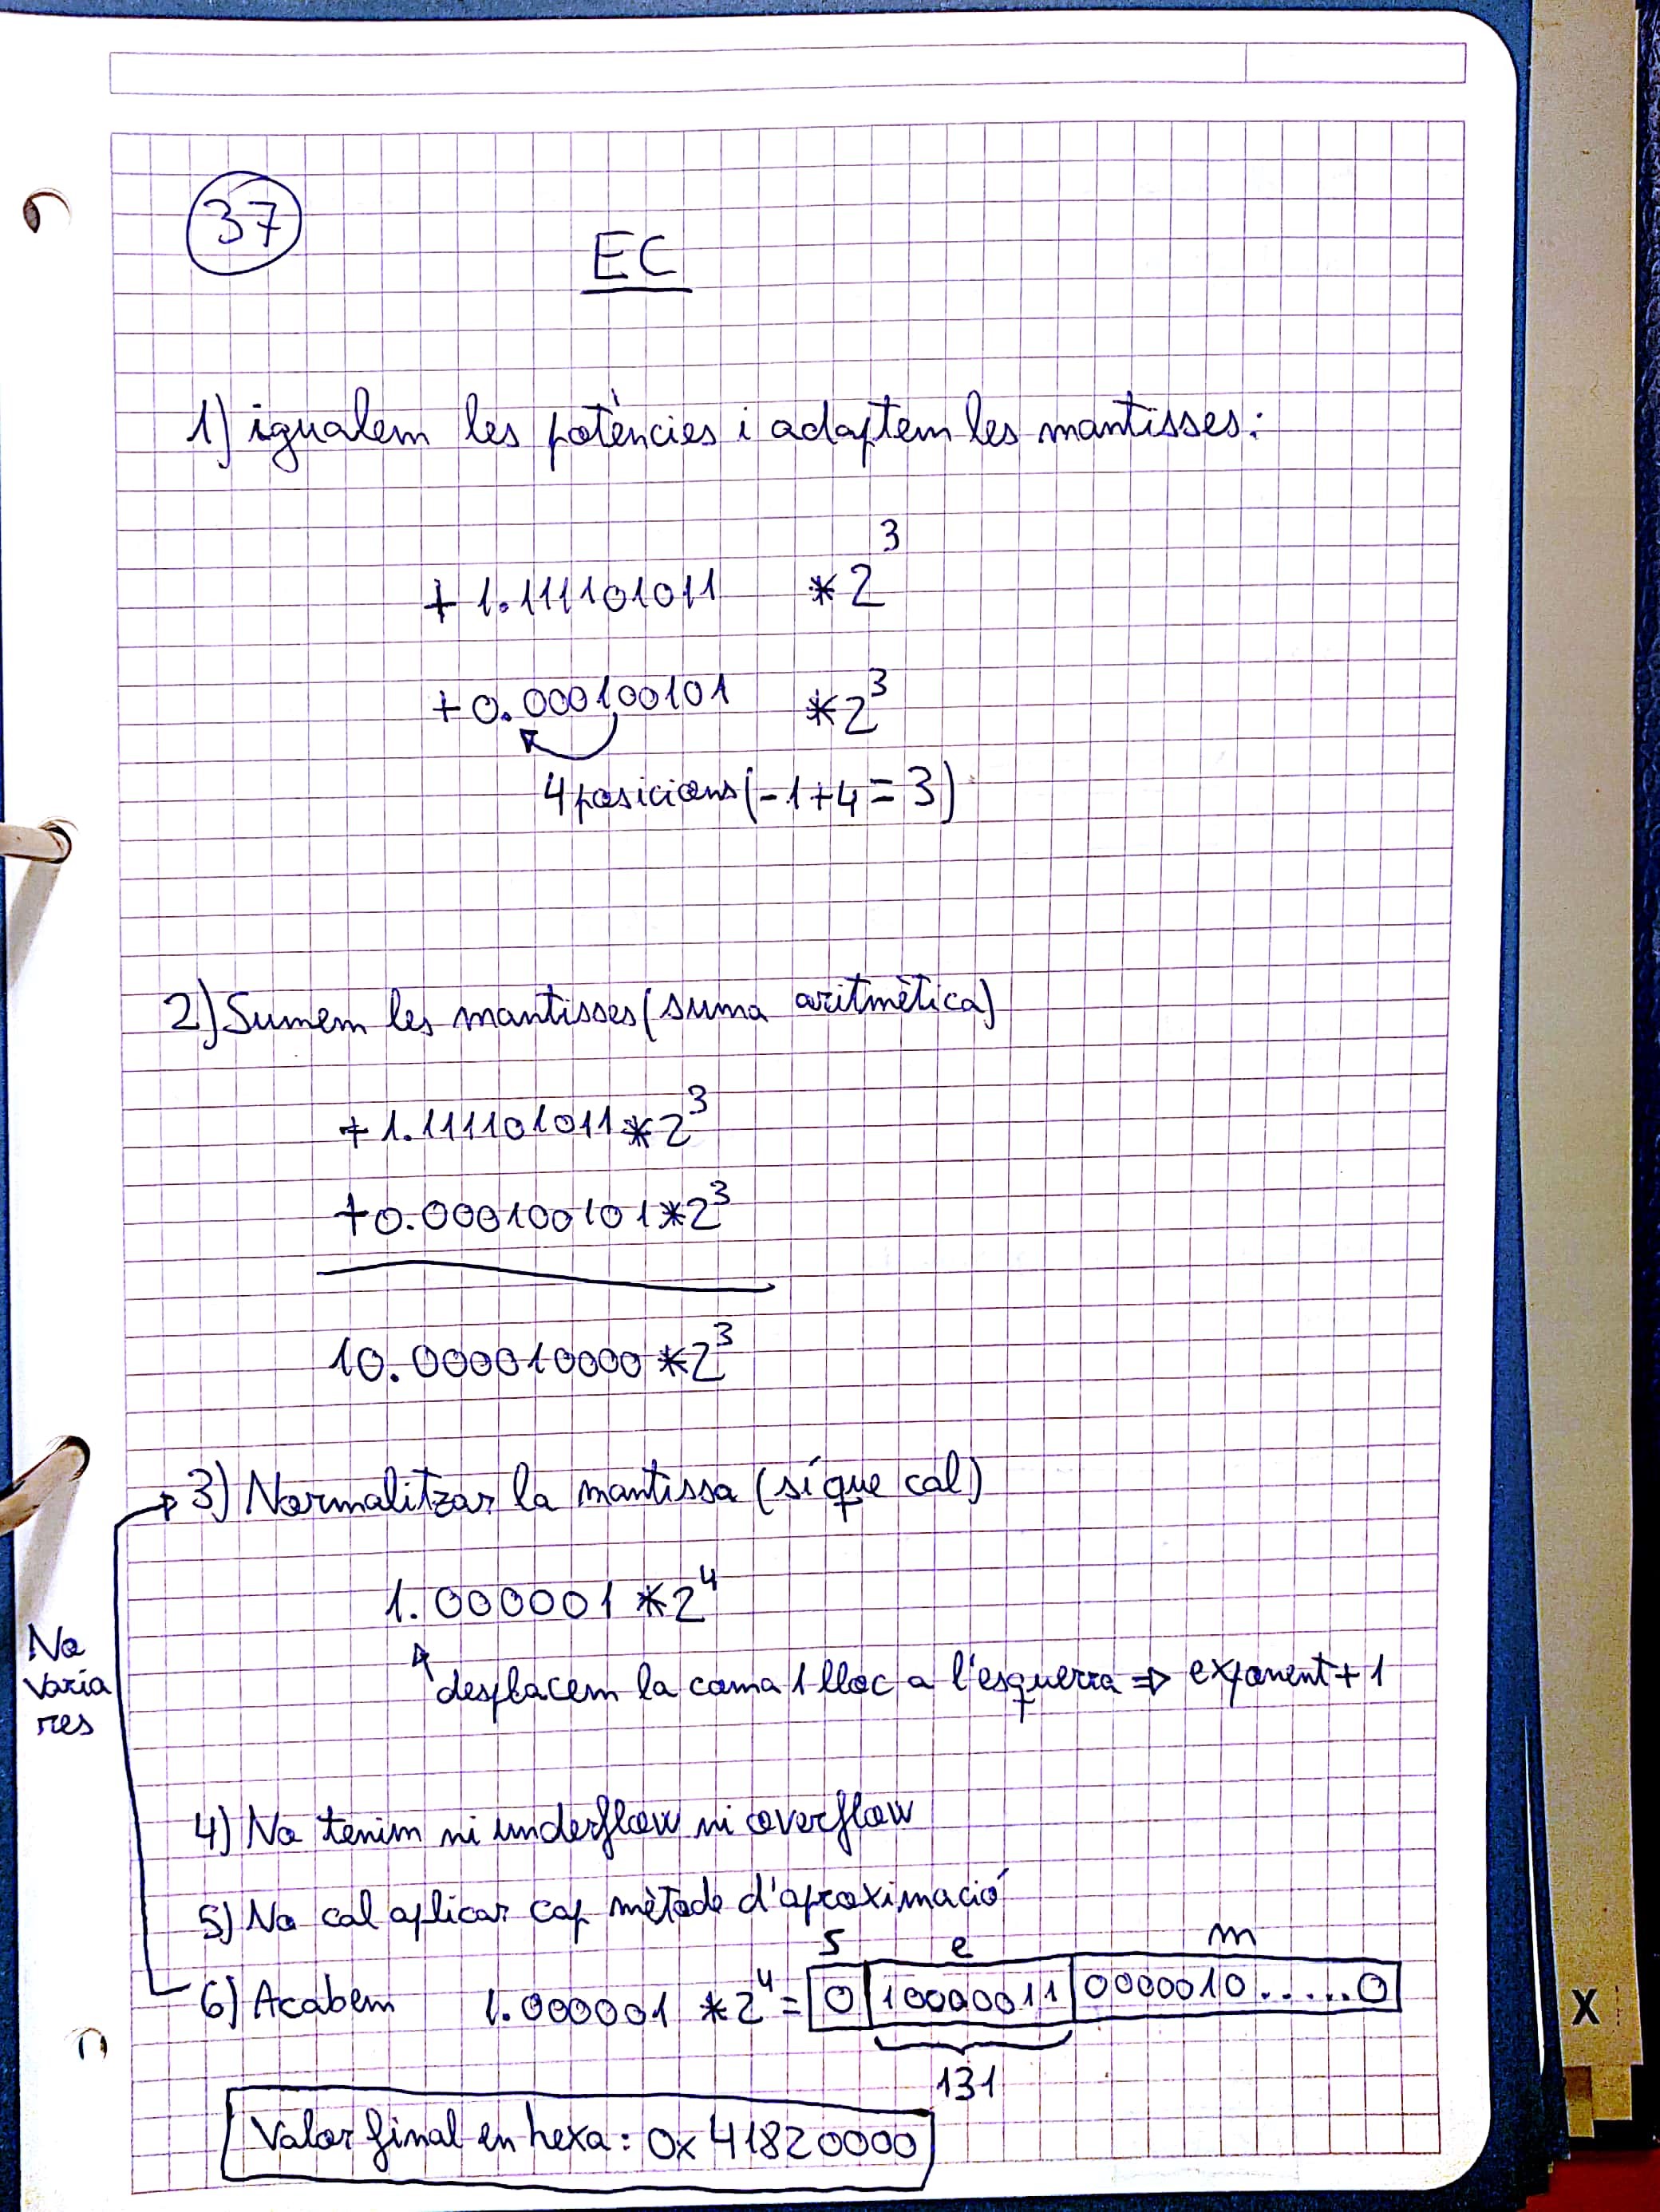 37
EC
1) igualem les potències i adaptem les mantisses:
+ 1.111101011 * 2^3
+0.000100101 * 2^3
4 posicions (-1+4=3)
2) Sumem les mantisses (suma aritmètica)
+ 1.111101011 * 2^3
+0.000100101 * 2^3
10.000010000 * 2^3
3) Normalitzar la mantissa (sí que cal)
1.000001 * 2^4
desplacem la coma 1 lloc a l'esquerra ⇒ exponent + 1
No
varia
res
4) No tenim ni underflow ni overflow
5) No cal aplicar cap mètode d'aproximació
s e m
6) Acabem 1.000001 * 2^4 = 0 10000011 0000010.....0
131
Valor final en hexa: 0x41820000
X